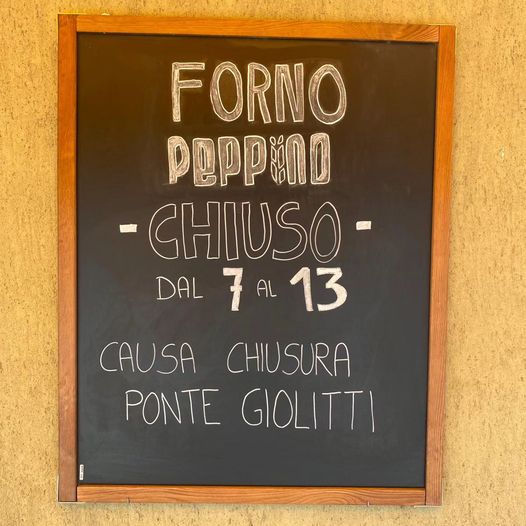 FORNO
PEPPINO
- CHIUSO -
DAL 7 AL 13
CAUSA CHIUSURA
PONTE GIOLITTI